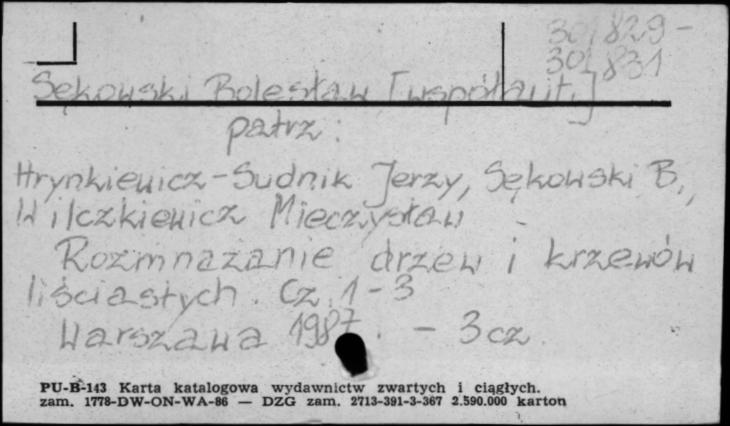 301829-
301831
Sękowski Bolesław [współaut.]
patrz:
Hrynkiewicz-Sudnik Jerzy, Sękowski B.,
Wilczkiewicz Mieczysław
Rozmnażanie drzew i krzewów
liściastych. Cz. 1-3
Warszawa 1987. - 3 cz.
PU-B-143 Karta katalogowa wydawnictw zwartych i ciągłych.
zam. 1778-DW-ON-WA-86 — DZG zam. 2713-391-3-367 2.590.000 karton